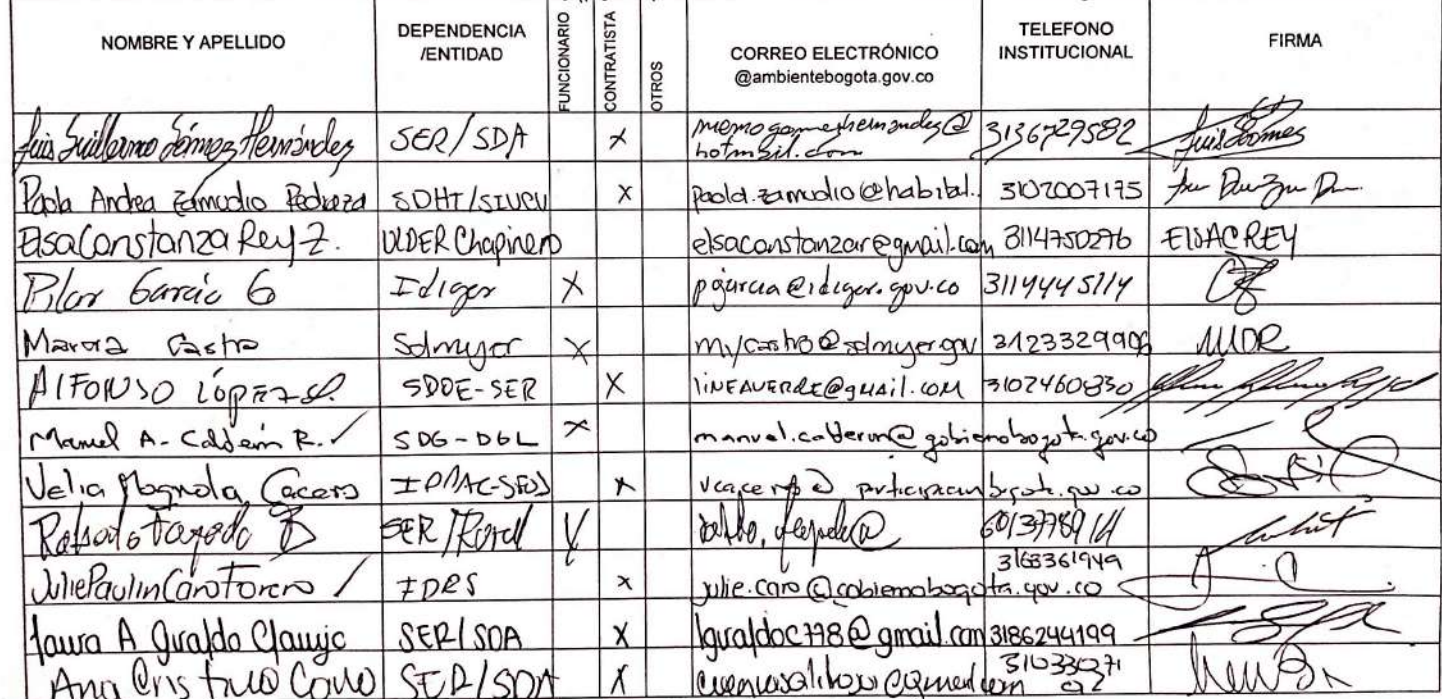 NOMBRE Y APELLIDO DEPENDENCIA /ENTIDAD FUNCIONARIO CONTRATISTA OTROS CORREO ELECTRÓNICO @ambientebogota.gov.co TELEFONO INSTITUCIONAL FIRMA
Luis Guillermo Gómez Hernández SER/SDA x memogomezhernandez@ hotmail.com 3136729582 Luis Gómez
Paola Andrea Zamudio Pedraza SDHT/ x paola.zamudio@habitat. 3102007175
Elsa Constanza Rey Z. ULDER Chapinero elsaconstanzar@gmail.com 3114750276 ELSACREY
Pilar García G Idiger X pgarcia@idiger.gov.co 3114445114
Castro Sdmujer X @sdmujer.gov
ALFONSO LÓPEZ SDDE-SER X LINEAVERDE@gmail.com 3102460830
Manuel A. Calderón R. SDG-DGL x manuel.calderon@gobiernobogota.gov.co
Velia Magnola Caceres x participacionbogota.gov.co
SER/Rural
Julie Paulin Caro Torero IDRS x julie.caro@gobiernobogota.gov.co 3163361949
Laura A Guraldo Clavijo SER/SDA X lguraldoc778@gmail.com 3186244199
Ana Cristina SER/SDA X